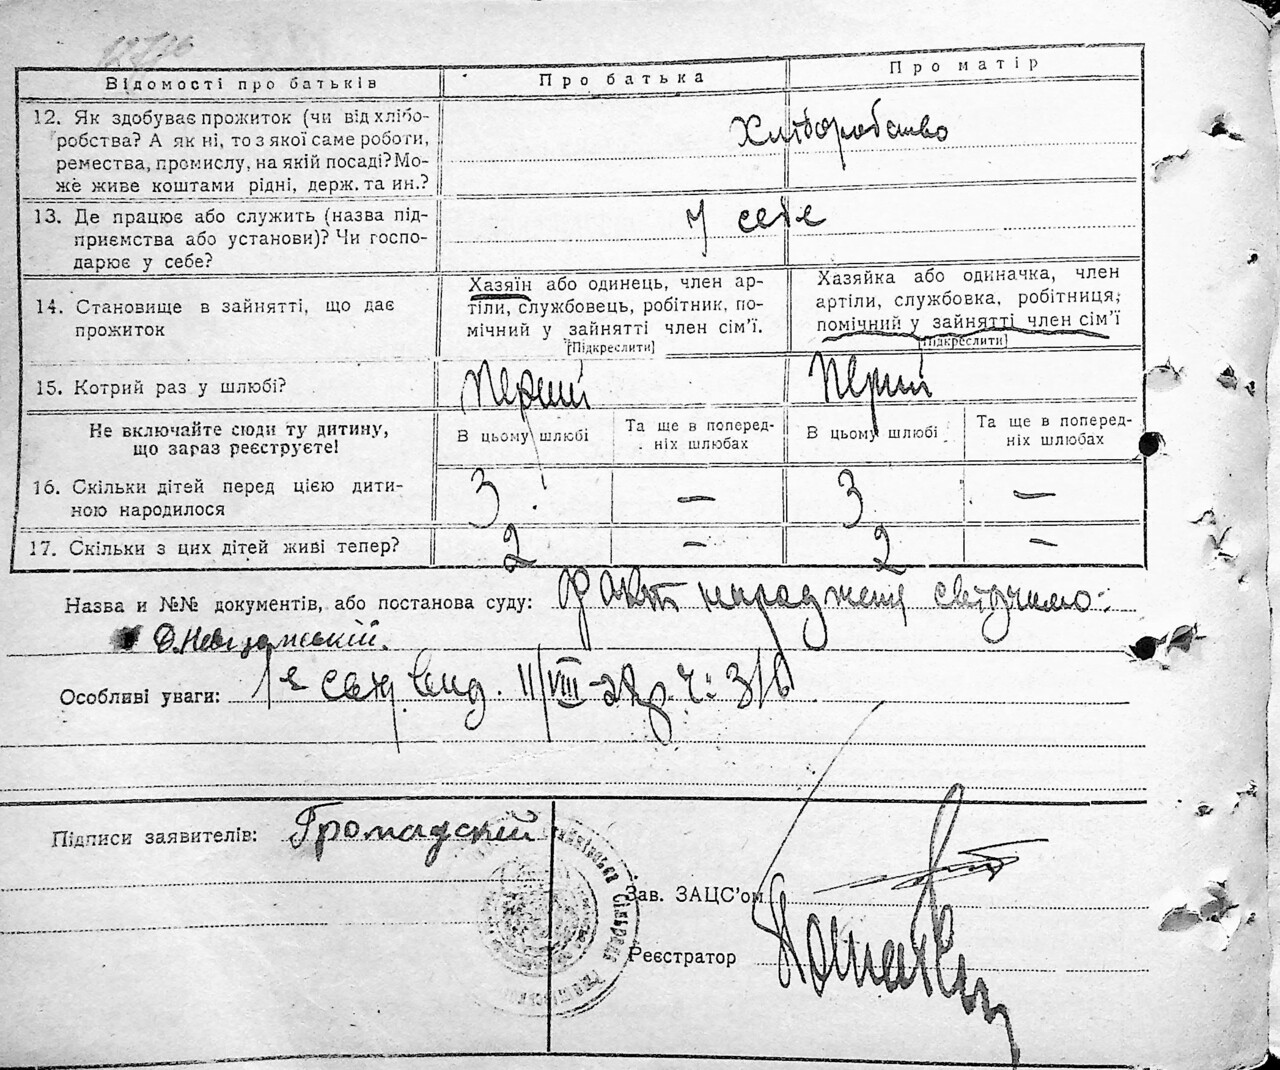 Відомості про батьків Про батька Про матір
12. Як здобуває прожиток (чи від хлібо-
робства? А як ні, то з якої саме роботи,
ремества, промислу, на якій посаді? Мо-
же живе коштами рідні, держ. та ин.?
Хліборобство
13. Де працює або служить (назва під-
приємства або установи)? Чи госпо-
дарює у себе?
У себе
14. Становище в зайнятті, що дає
прожиток
Хазяїн або одинець, член ар-
тіли, службовець, робітник, по-
мічний у зайнятті член сім’ї.
[Підкреслити]
Хазяйка або одиначка, член
артіли, службовка, робітниця,
помічний у зайнятті член сім’ї
[Підкреслити]
15. Котрий раз у шлюбі? Перший Перший
Не включайте сюди ту дитину,
що зараз реєструєте!
В цьому шлюбі
Та ще в поперед-
ніх шлюбах
В цьому шлюбі
Та ще в поперед-
ніх шлюбах
16. Скільки дітей перед цією дити-
ною народилося
3 — 3 —
17. Скільки з цих дітей живі тепер? 2 — 2 —
Назва и №№ документів, або постанова суду: Факт народженя
Особливі уваги: 11/VIII-28р. ч: 316
Підписи заявителів: Громадскій
Зав. ЗАЦС’ом
Реєстратор
Сільрада